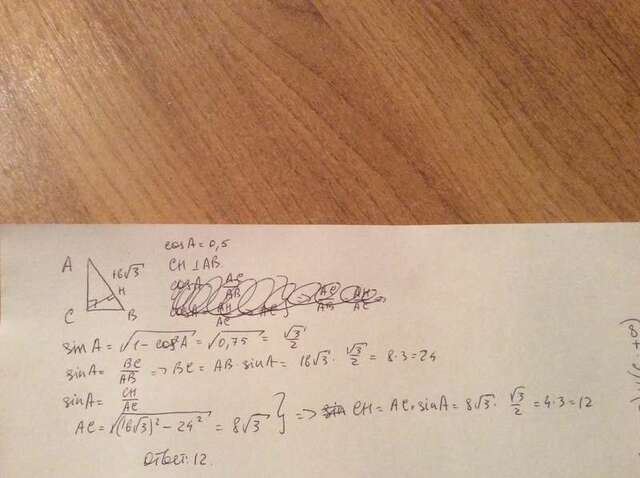 cosA = 0,5
CH ⊥ AB.
A
16√3
H
C
B
sinA = √(1 - cos²A) = √0,75 = √3/2
sinA = BC/AB => BC = AB · sinA = 16√3 · √3/2 = 8·3 = 24
sinA = CH/AC
AC = √((16√3)² - 24²) = 8√3 } => CH = AC · sinA = 8√3 · √3/2 = 4·3 = 12
Ответ: 12.